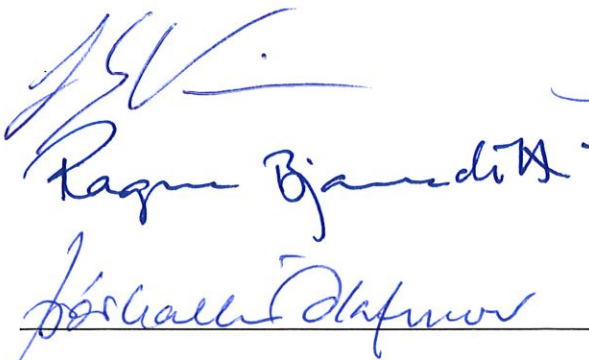 Ragna Bjarnadóttir
Þórhallur Ólafsson